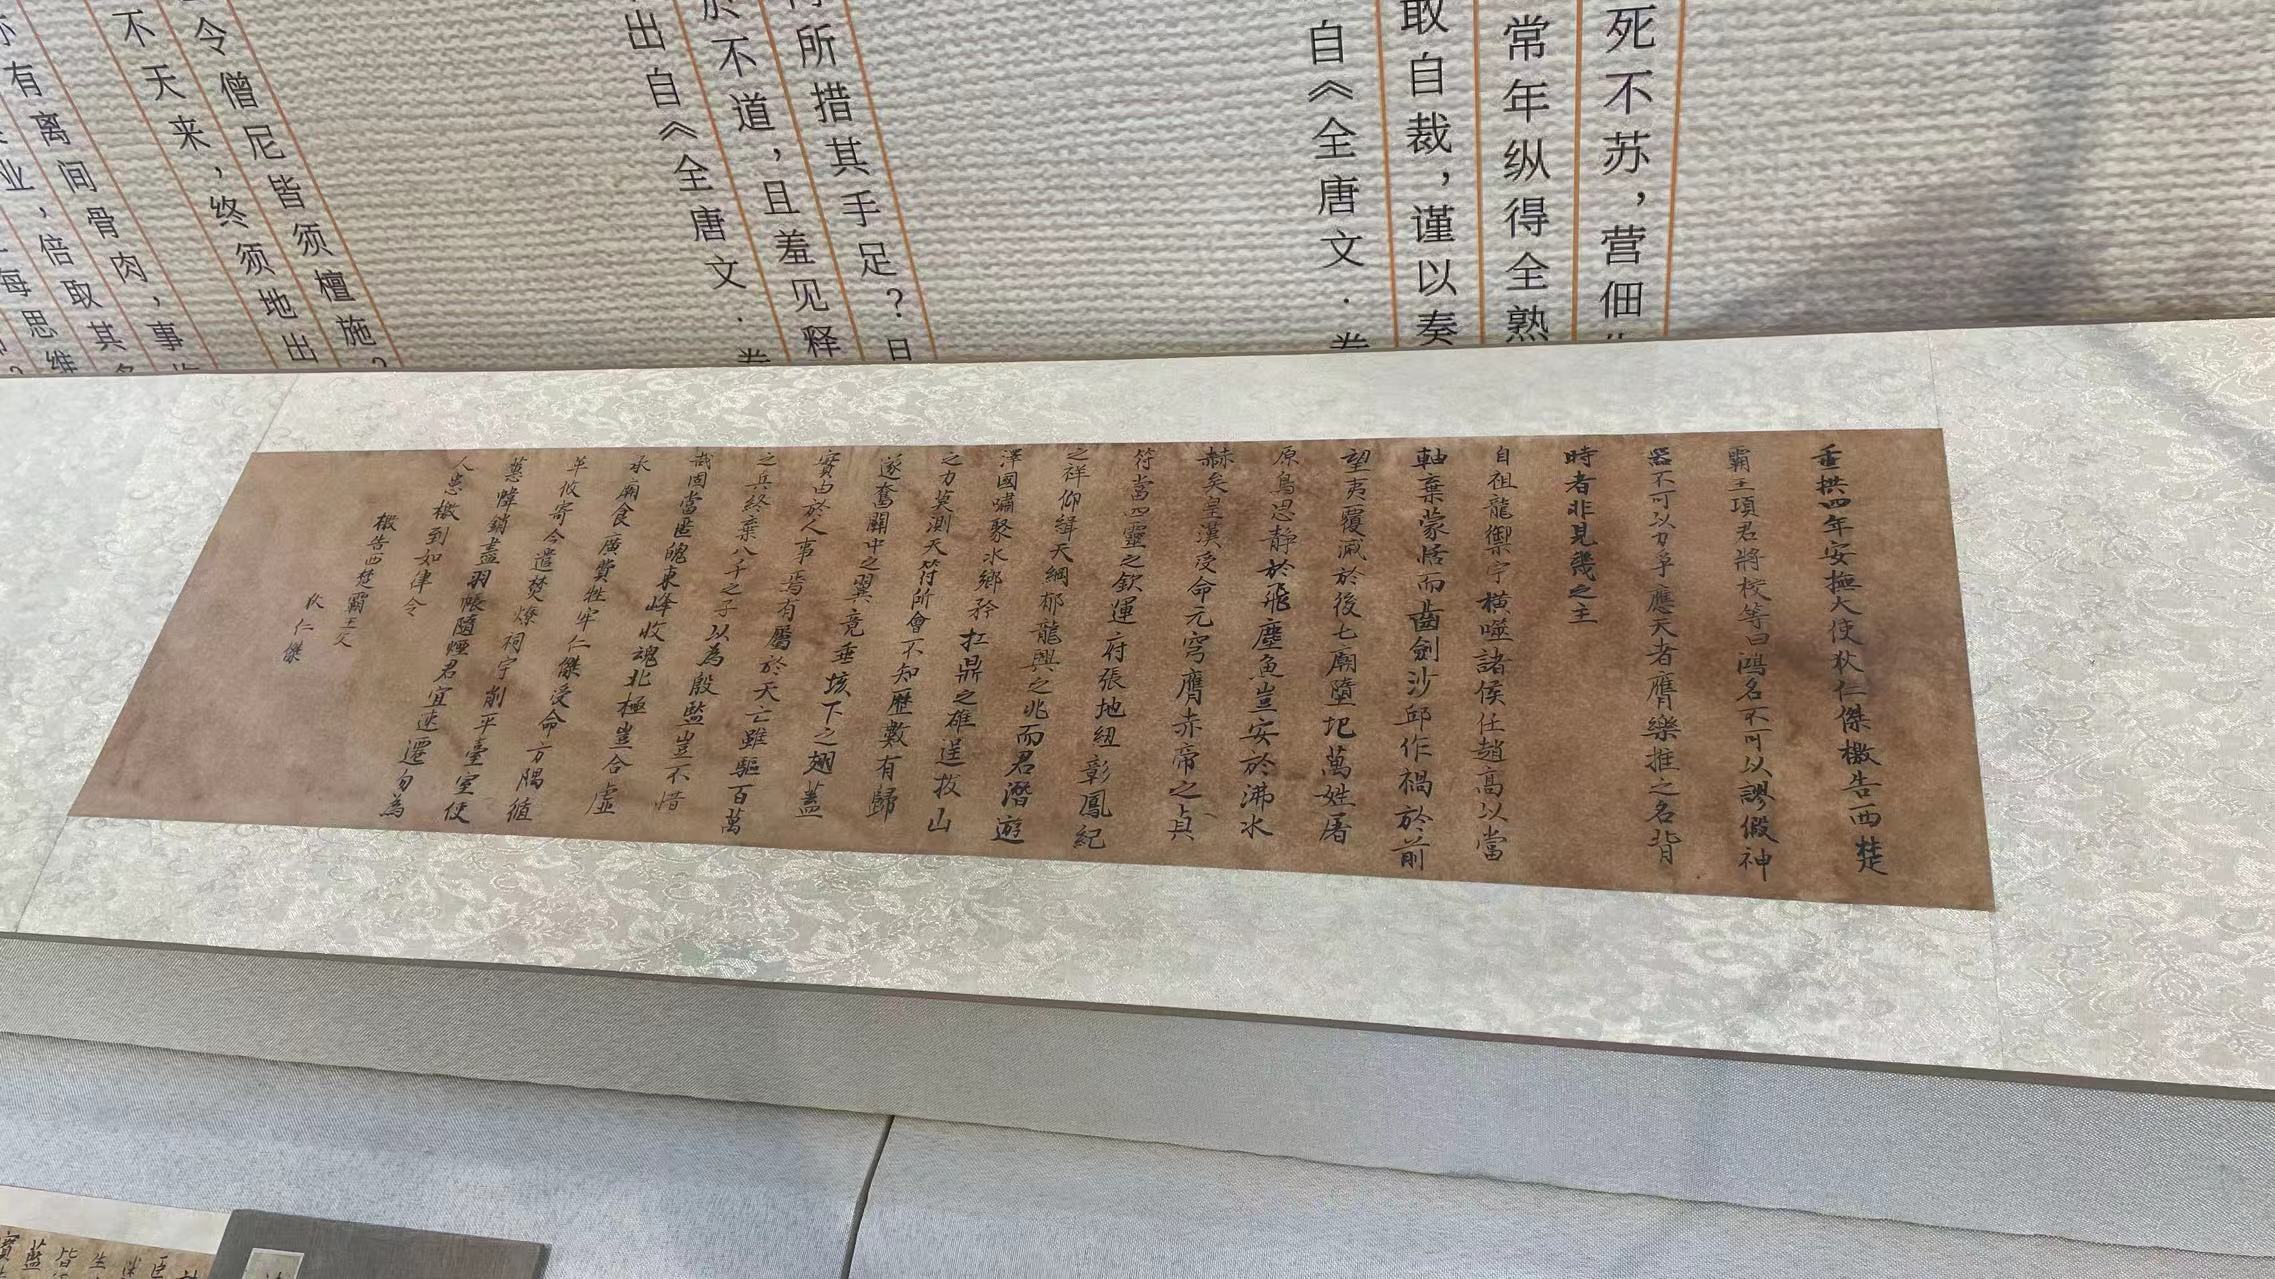 死不苏，营佃
常年纵得全熟
取自裁，谨以奏
自《全唐文·卷
所措其手足？
於不道，且羞见释
出自《全唐文·卷
令僧尼皆须檀施？
不天来，终须地出
有离间骨肉，事
业，倍取其名
每思维
垂拱四年安撫大使狄仁傑檄告西楚
霸王項君將校等曰鴻名不可以謬假神
器不可以力爭應天者膺樂推之名背
時者非見幾之主
自祖龍禦宇橫噬諸侯任趙高以當
軸棄蒙恬而齒劍沙邱作禍於前
望夷覆滅於後七廟墮圯萬姓屠
原鳥思靜於飛塵魚豈安於沸水
赫矣皇漢受命元穹膺赤帝之貞
符當四靈之欽運府張地紐彰鳳紀
之祥仰緝天綱郁龍興之兆而君潛遊
澤國嘯聚水鄉矜扛鼎之雄逞拔山
之力莫測天符所會不知歷數有歸
遂奮關中之翼竟垂垓下之翅蓋
實由於人事焉有屬於天亡雖驅百萬
之兵終棄八千之子以為殷監豈不惜
哉固當匿魄東峰收魂北極豈合虛
承廟食廣費牲牢仁傑受命方隅循
革攸寄今遣焚燎祠宇削平臺室使
蕙幃銷盡羽帳隨煙君宜速遷勿為
人患檄到如律令
檄告西楚霸王文
狄仁傑